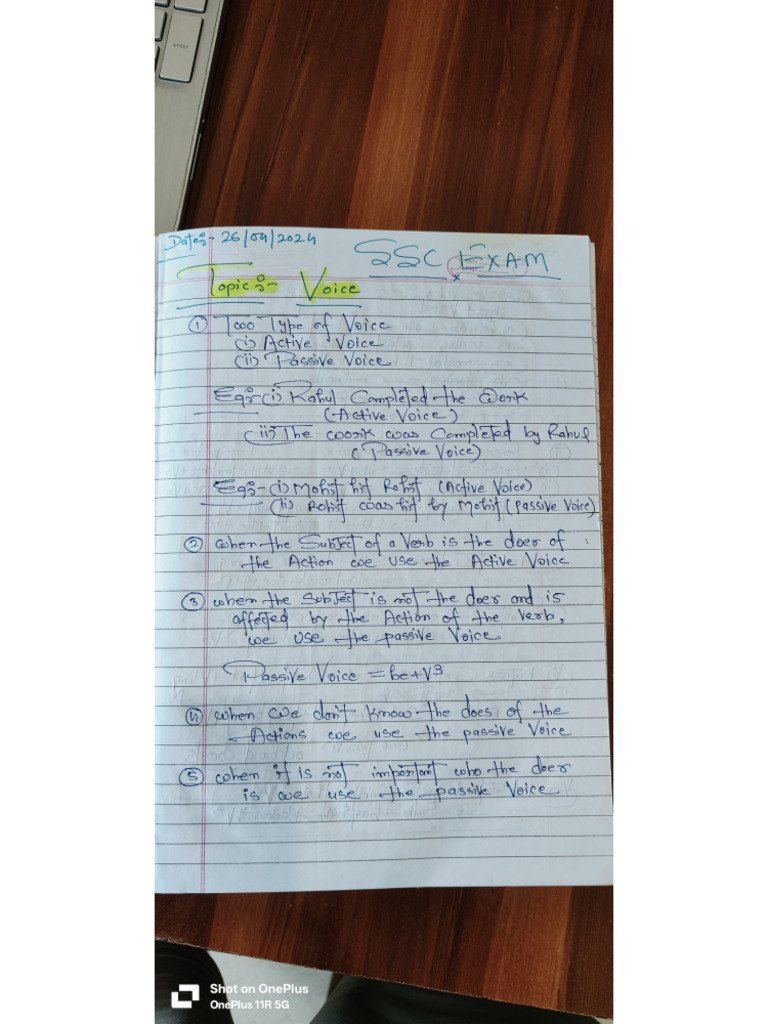 enter
Date:- 26/04/2024
SSC EXAM
Topic:- Voice
① Two Type of Voice
(i) Active Voice
(ii) Passive Voice
Eg:- (i) Rahul Completed the Work
(Active Voice)
(ii) The work was Completed by Rahul
(Passive Voice)
Eg:- (i) Mohit hit Rohit (Active Voice)
(ii) Rohit was hit by Mohit (Passive Voice)
② when the Subject of a Verb is the doer of
the Action we use the Active Voice
③ when the Subject is not the doer and is
affected by the Action of the Verb,
we use the passive Voice
Passive Voice = be+V³
④ when we don't know the does of the
Actions we use the passive Voice
⑤ when it is not important who the doer
is we use the passive Voice
Shot on OnePlus
OnePlus 11R 5G